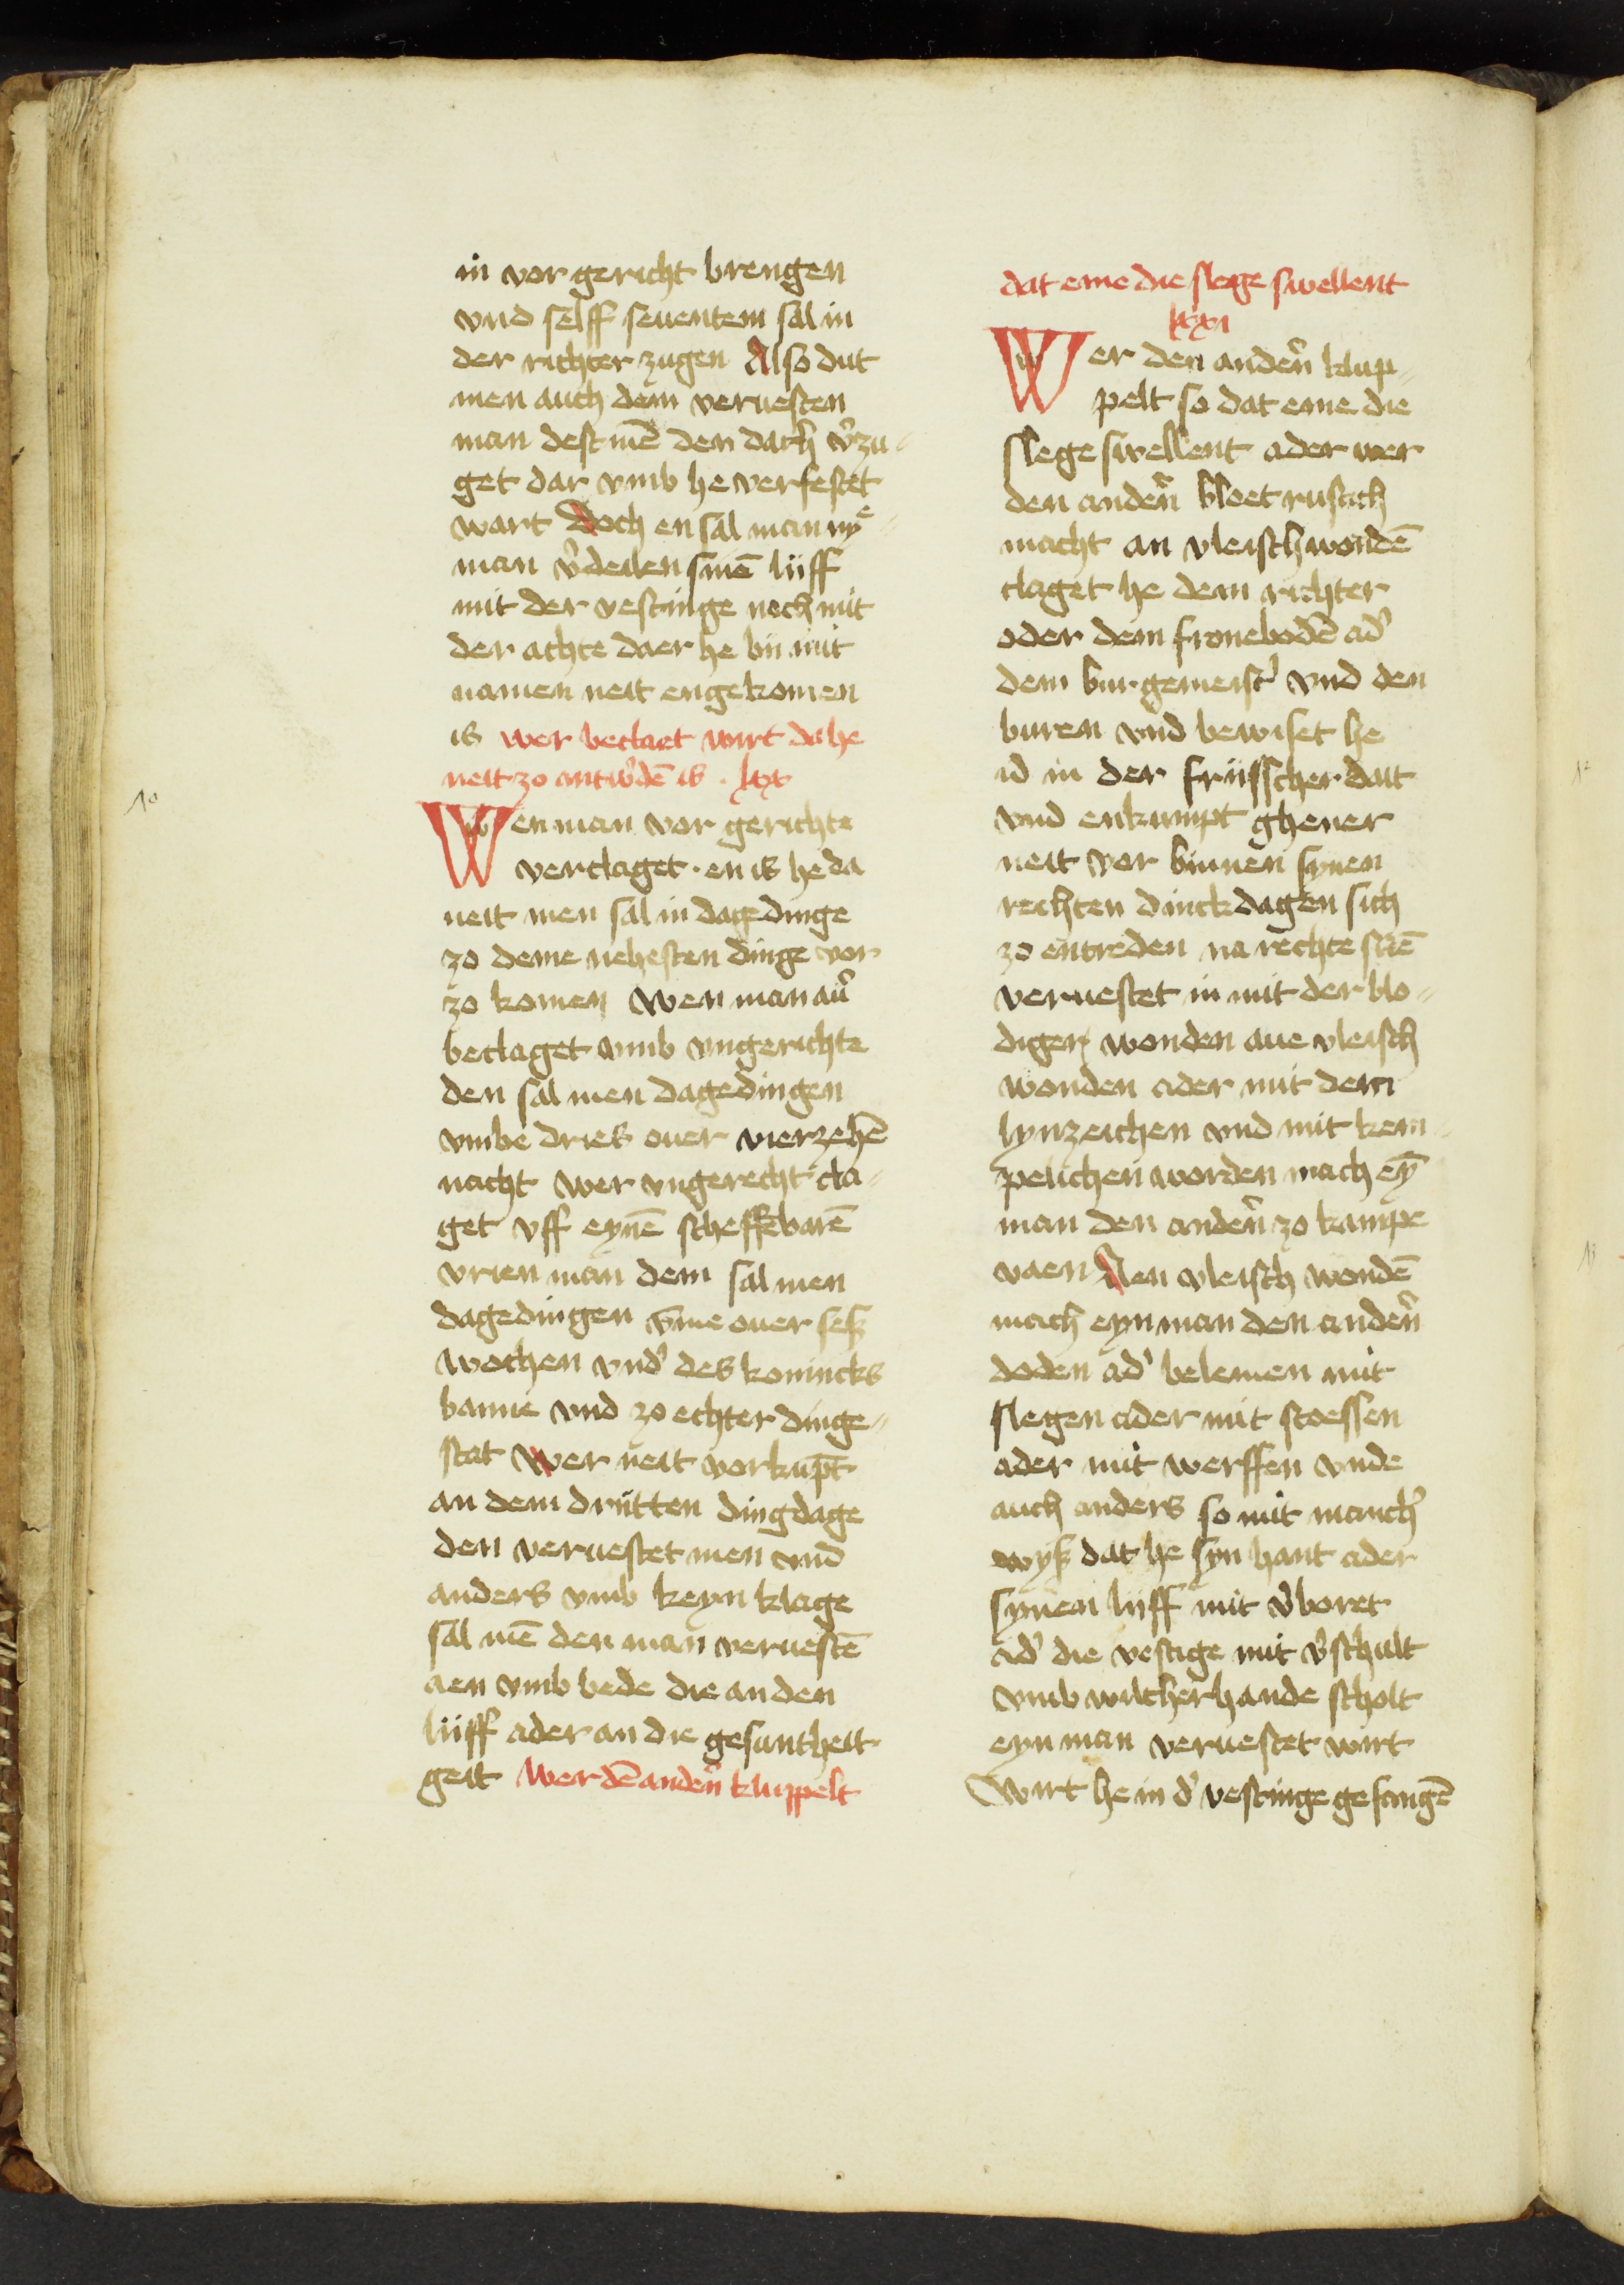 in vor gericht brengen
vnd selff seuentem sal in
der richter zugen Also dut
men auch dem veruesten
man dest mē den dach v̓zu⸗
get dar vmb he verfestet
wart Doch en sal man nye⸗
man v̓deilen sinē lijff
mit der vestinge noch mit
der achte daer he bij mit
namen neit engekomen
is wer beclaet wirt da he
neit zo antw̓dē is . lxx
Wen man vor gerichte
verclaget · en is he da
neit men sal in dagedinge
zo deme nehesten dinge vor
zo komen Wen man au̓
beclaget vmb vngerichte
den sal men dagedingen
vmbe dries ouer vierzehē
nacht Wer vngerecht cla⸗
get vff eynē scheffēbarē
vrien man dem sal men
dagedingen v̄me ouer seß
wochen vnd̓ des konincks
banne vnd zo echter dinge⸗
stat Wer neit vorkūpt
an dem dritten dingdage
den veruestet men vnd
anders vmb keyn klage
sal mē den man veruestē
aen vmb bede die an den
lijff ader an die gesuntheit
geit Wer dē anden̓ kluppelt
dat eme die slege swellent
lxxi
Wer den anden̓ klup⸗
pelt so dat eme die
slege swellent ader wer
den anden̓ bloet rusich
macht an vleisch wondē
claget he dem richter
oder dem fronebodē ad̓
dem burgemeist̓ vnd den
buren vnd bewiset he
id in der frijsscher dait
vnd enkumpt ghener
neit vor binnen synen
rechten dinckdagen sich
zo entreden na rechte mē
veruestet in mit der blo⸗
digen wonden aue vleisch
wonden ader mit dem
lynzeichen vnd mit kem⸗
pelichen worden mach eȳ
man den anden̓ zo kampe
vaen Aen vleisch wondē
mach eyn man den anden̓
doden ad̓ belemen mit
slegen ader mit stoessen
ader mit werffen vnde
auch anders so mit manch̓
wyß dat he syn hant ader
synen lijff mit v̓boret
ad̓ die vestige mit v̓schult
vmb wilcherhande scholt
eyn man veruestet wirt
Wirt he in d̓ vestinge gefangē